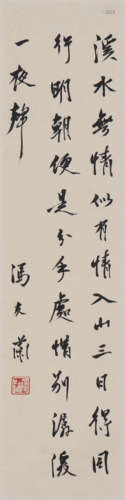 溪水無情似有情入山三日得同
行明朝便是分手處惜別潺湲
一夜聲
馮友蘭